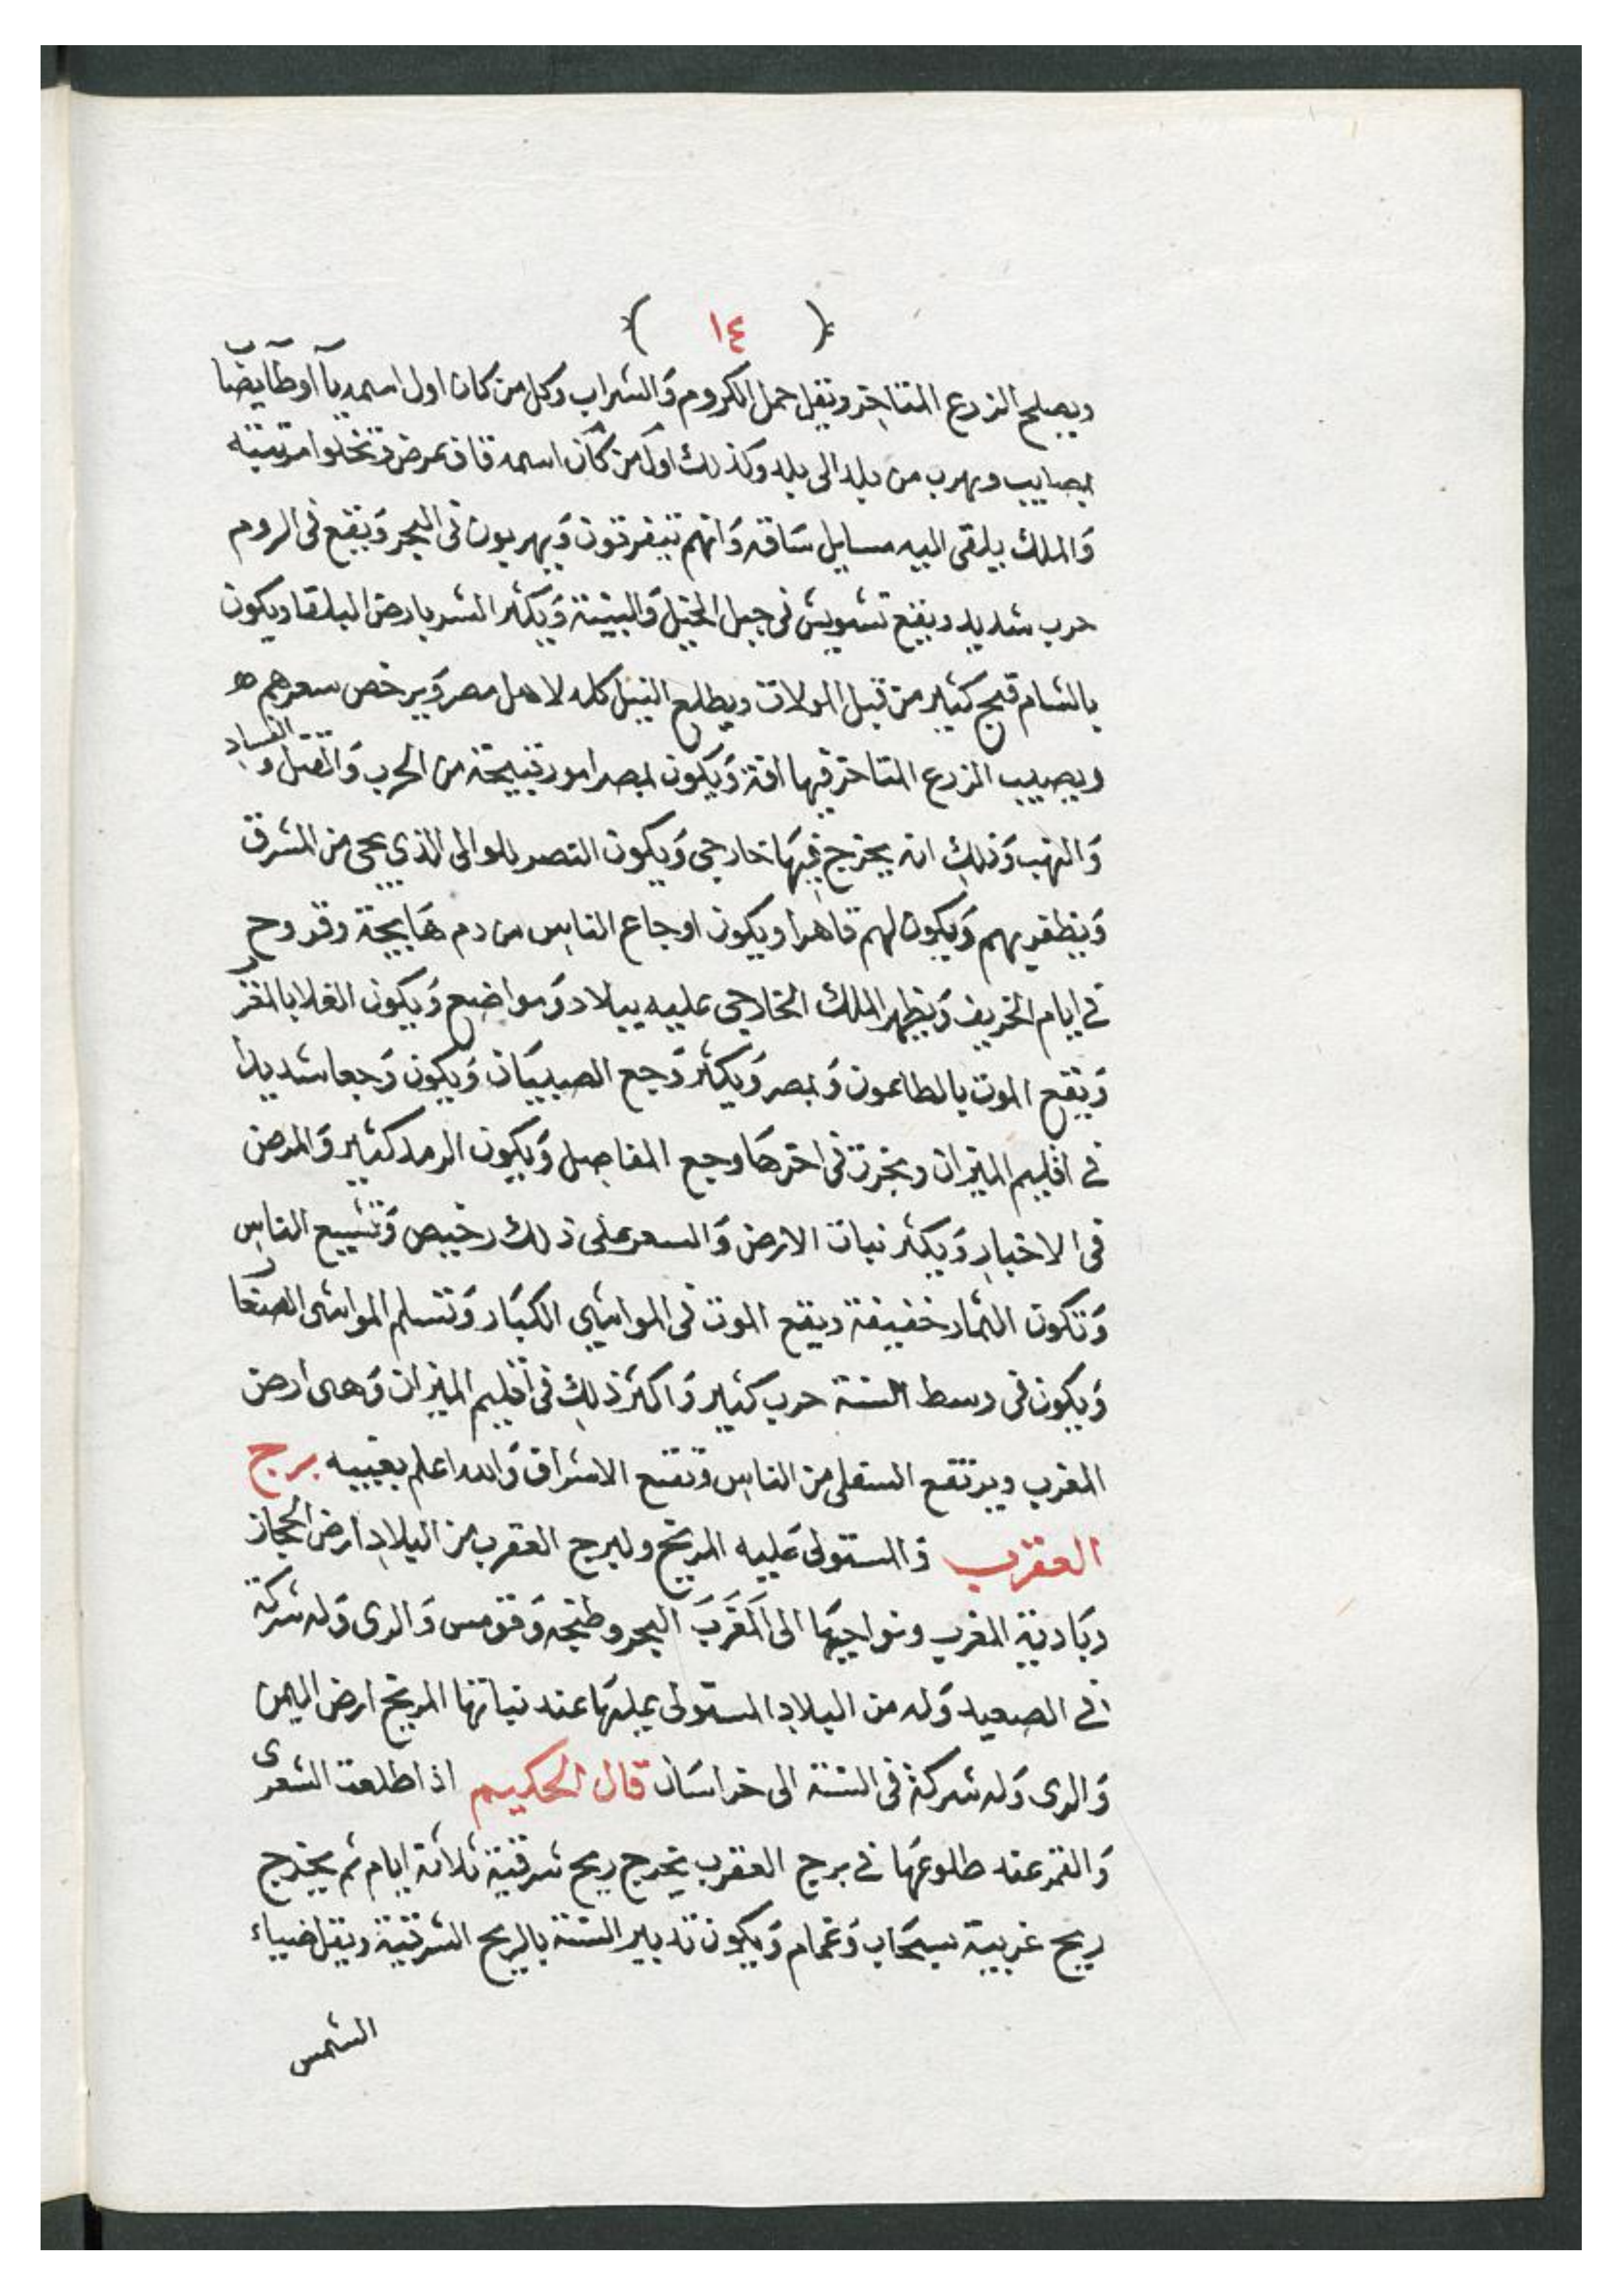 ( ١٤ )
ويصلح الزرع المتاخر وتقل حمل الكروم والشراب وكل من كان اول اسمه يآ او طآ يضا ب
بمصايب ويهرب من بلد الى بلد وكذلك اول من كان اسمه قاف يمرض وتخلوا مرتبته
والملك يلقى اليه مسايل شاقه وانهم يتفرقون ويهربون فى البحر ويقع فى الروم
حرب شديد ويقع تشويش فى جبل الخيل والبثينة ويكثر الشر بارض البلقا ويكون
بالشام قبح كثير من قبل الولات ويطلع النيل كله لاهل مصر ويرخص سعرهم
ويصيب الزرع المتاخر فيها افة ويكون بمصر امور قبيحة من الحرب والقتل والفساد
والنهب وذلك انه يخرج فيها خارجي ويكون النصر للوالى الذي يجى من المشرق
ويظفر بهم ويكون لهم قاهرا ويكون اوجاع الناس من دم هايجة وقروح
في ايام الخريف ويظهر الملك الخارجي عليه ببلاد ومواضع ويكون الغلا بالمغر ب
ويقع الموت بالطاعون وبمصر ويكثر وجع الصبيان ويكون وجعا شديدا
في اقليم الميزان ويخرت فى اخرها وجع المفاصل ويكون الرمد كثير والمرض
فى الاخيار ويكثر نبات الارض والسعر على ذلك رخيص وتشبع الناس
وتكون الثمار خفيفة ويقع الموت فى المواشي الكبار وتسلم المواشى الصغا ر
ويكون فى وسط السنة حرب كثير واكثر ذلك فى اقليم الميزان وهى ارض
المغرب ويرتفع السفلى من الناس وتقع الاشراف والله اعلم بغيبه برج
العقرب فالمستولى عليه المريخ ولبرج العقرب من البلاد ارض الحجاز
وبادية المغرب ونواحيها الى المقرب البحر وطنجه وقومس والرى وله شركة
في الصعيد وله من البلاد المستولى عليها عند نباتها المريخ ارض اليمن
والرى وله شركة فى السنة الى خراسان قال الحكيم اذا طلعت الشعرى
والقمر عند طلوعها في برج العقرب يخرج ريح شرقية ثلاثة ايام ثم يخرج
ريح غربية بسحاب وغمام ويكون تدبير السنة بالريح الشرقية ويقل ضياء
الشمس